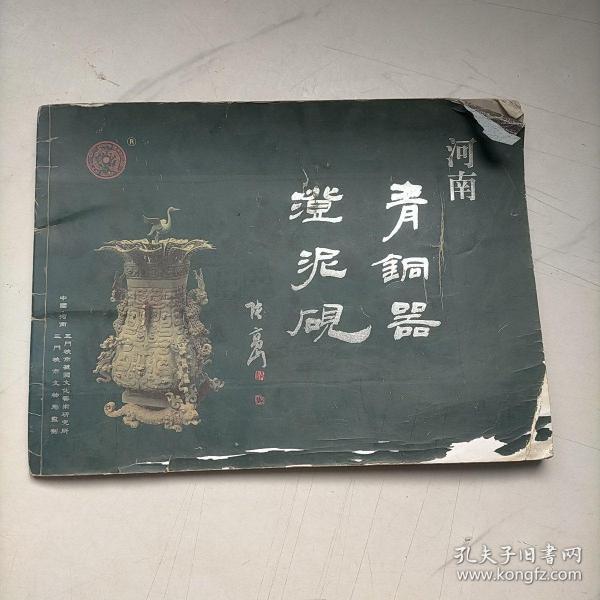 河南
青銅器
澄泥硯
中國·河南 三門峽市虢國文化藝術研究所
三門峽市文物局監制
®
孔夫子旧书网
www.kongfz.com